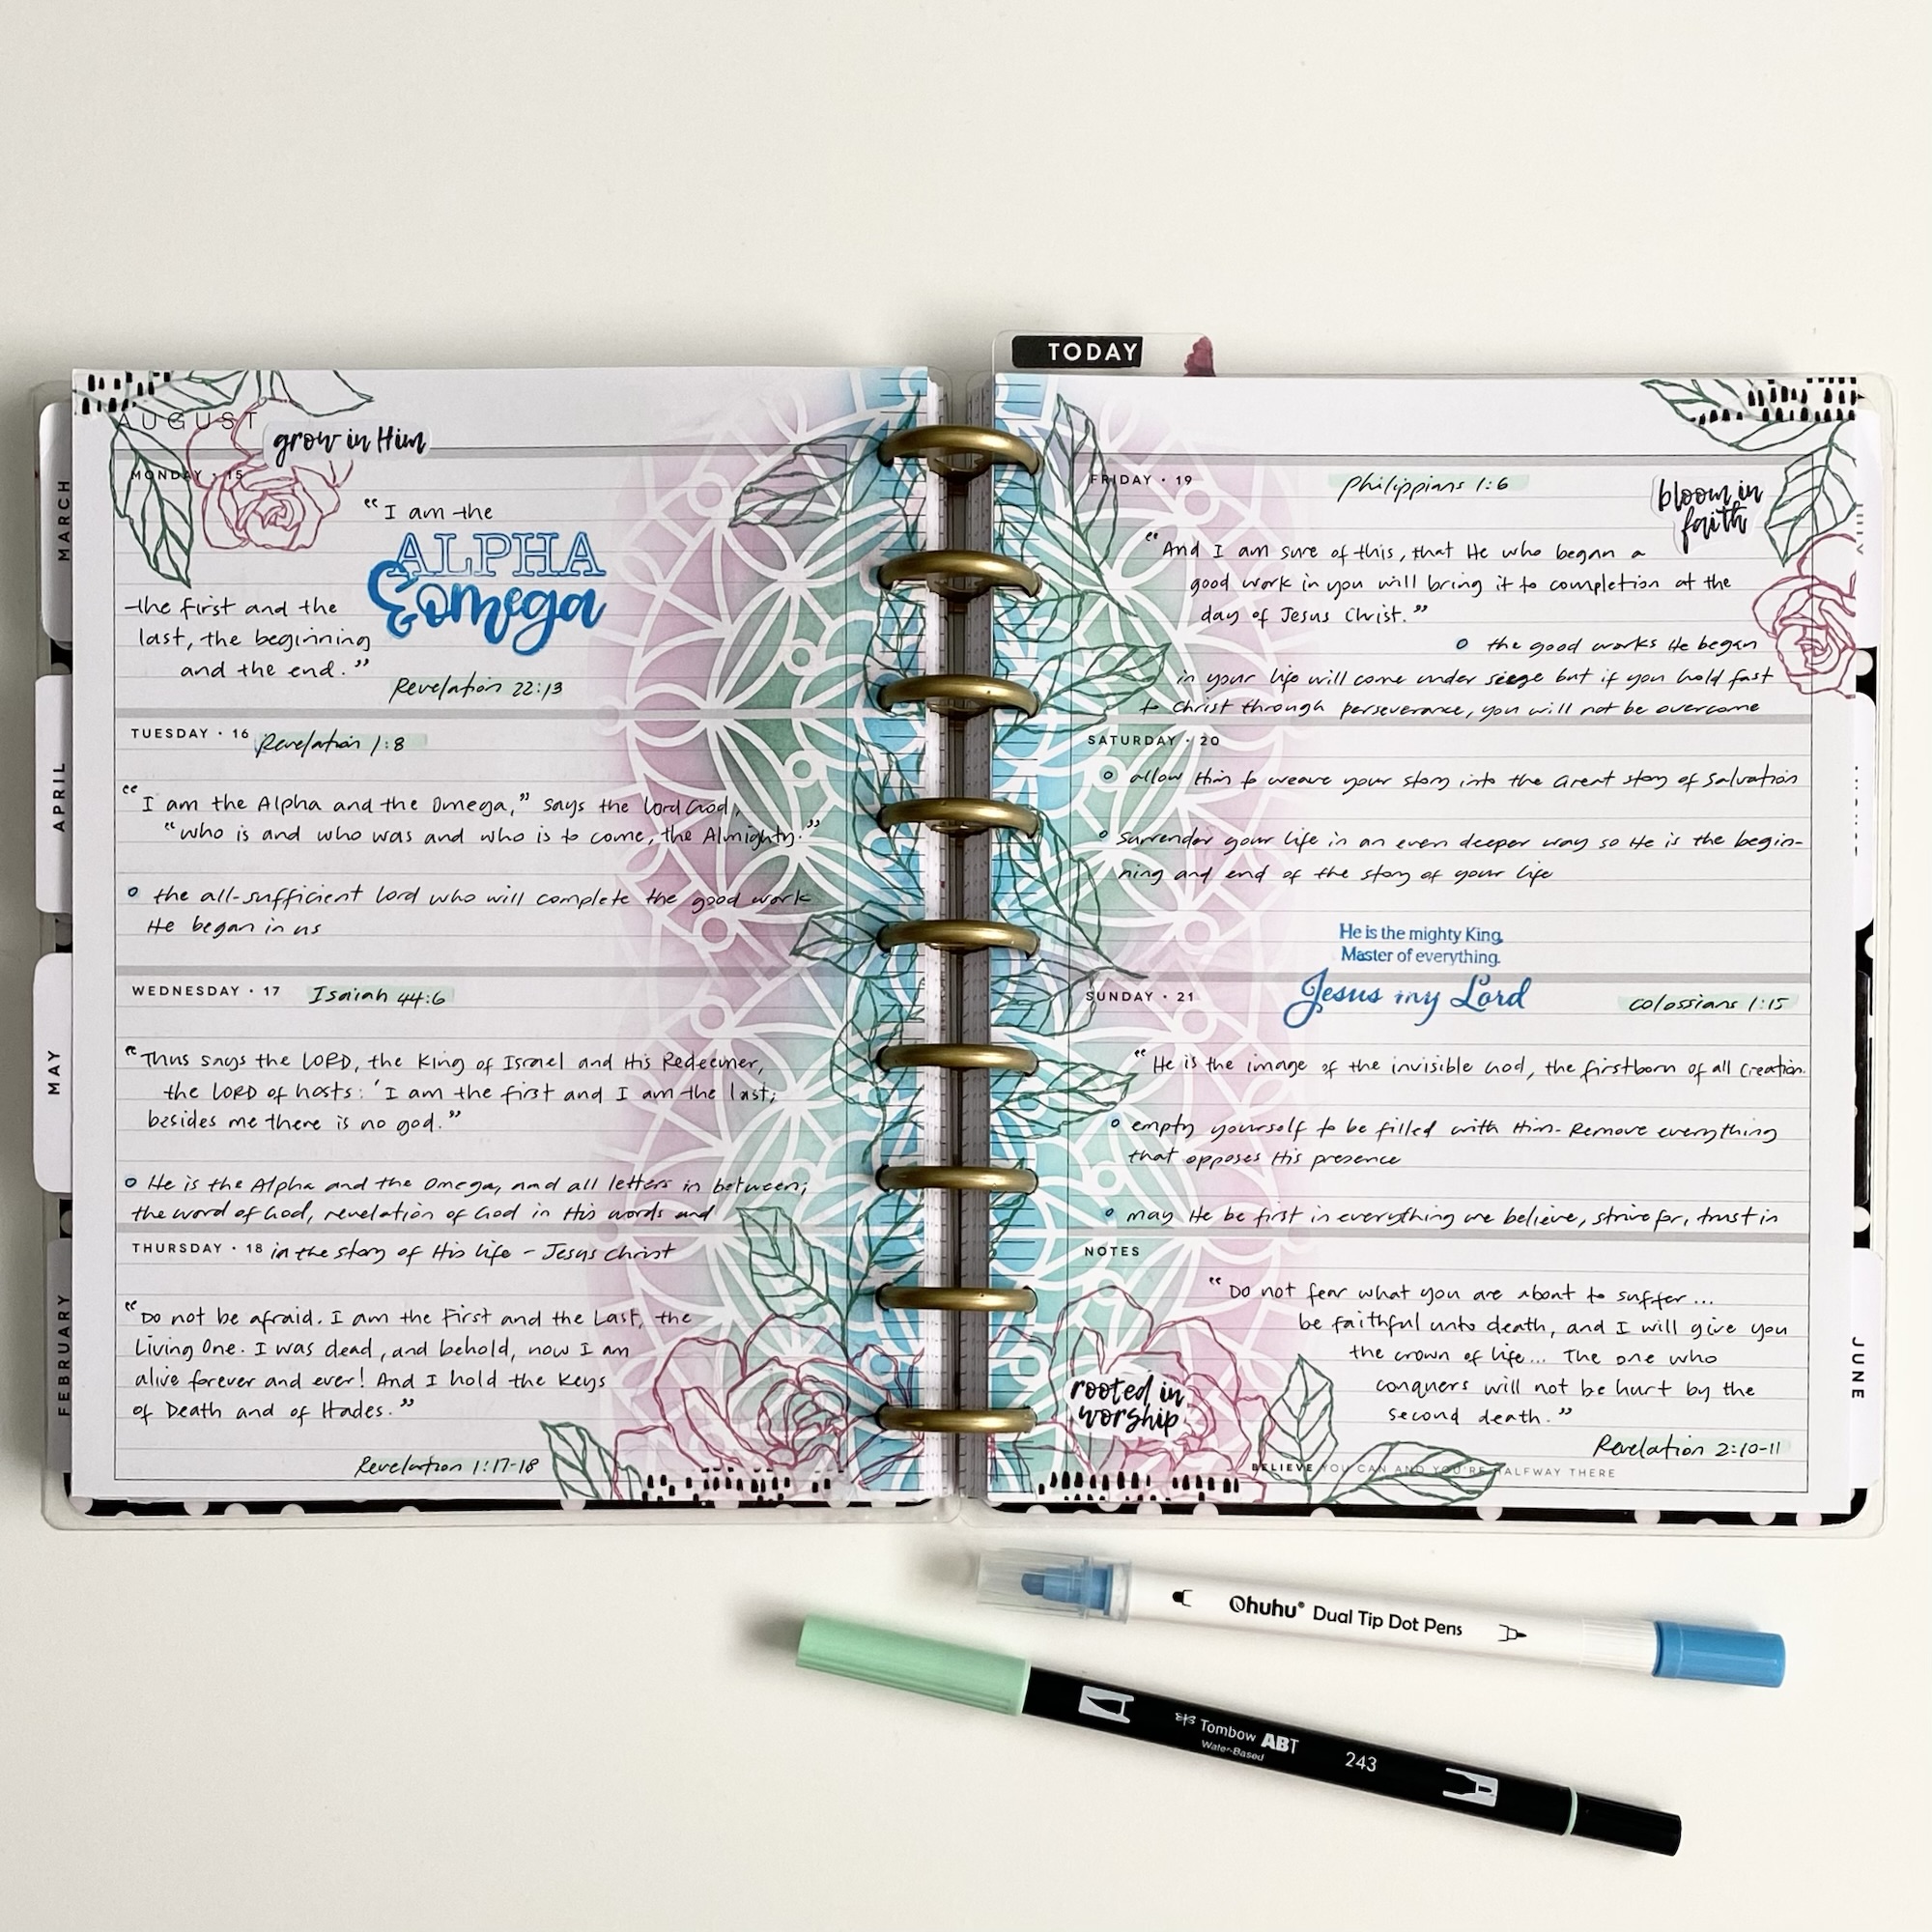 TODAY
AUGUST
grow in Him
MONDAY · 15
"I am the
ALPHA
& omega
the first and the
last, the beginning
and the end."
Revelation 22:13
TUESDAY · 16
Revelation 1:8
"I am the Alpha and the Omega," says the Lord God,
"who is and who was and who is to come, the Almighty."
the all-sufficient Lord who will complete the good work
He began in us
WEDNESDAY · 17
Isaiah 44:6
"Thus says the LORD, the King of Israel and His Redeemer,
the LORD of hosts: 'I am the first and I am the last;
besides me there is no god."
He is the Alpha and the Omega, and all letters in between;
the word of God, revelation of God in His words and
THURSDAY · 18 in the story of His life - Jesus Christ
"Do not be afraid. I am the First and the Last, the
Living One. I was dead, and behold, now I am
alive forever and ever! And I hold the keys
of Death and of Hades."
Revelation 1:17-18
MARCH
APRIL
MAY
FEBRUARY
FRIDAY · 19
Philippians 1:6
bloom in
faith
"And I am sure of this, that He who began a
good work in you will bring it to completion at the
day of Jesus Christ."
the good works He began
in your life will come under siege but if you hold fast
to Christ through perseverance, you will not be overcome
SATURDAY · 20
allow Him to weave your story into the Great story of Salvation
Surrender your life in an even deeper way so He is the begin-
ning and end of the story of your life
He is the mighty King,
Master of everything.
SUNDAY · 21
Jesus my Lord
Colossians 1:15
"He is the image of the invisible God, the firstborn of all creation.
empty yourself to be filled with Him- Remove everything
that opposes His presence
may He be first in everything we believe, strive for, trust in
NOTES
"Do not fear what you are about to suffer...
be faithful unto death, and I will give you
the crown of life... The one who
conquers will not be hurt by the
second death."
Revelation 2:10-11
rooted in
worship
BELIEVE YOU CAN AND YOU'RE HALFWAY THERE
JULY
JUNE
Ohuhu® Dual Tip Dot Pens
Tombow ABT
Water-Based
243